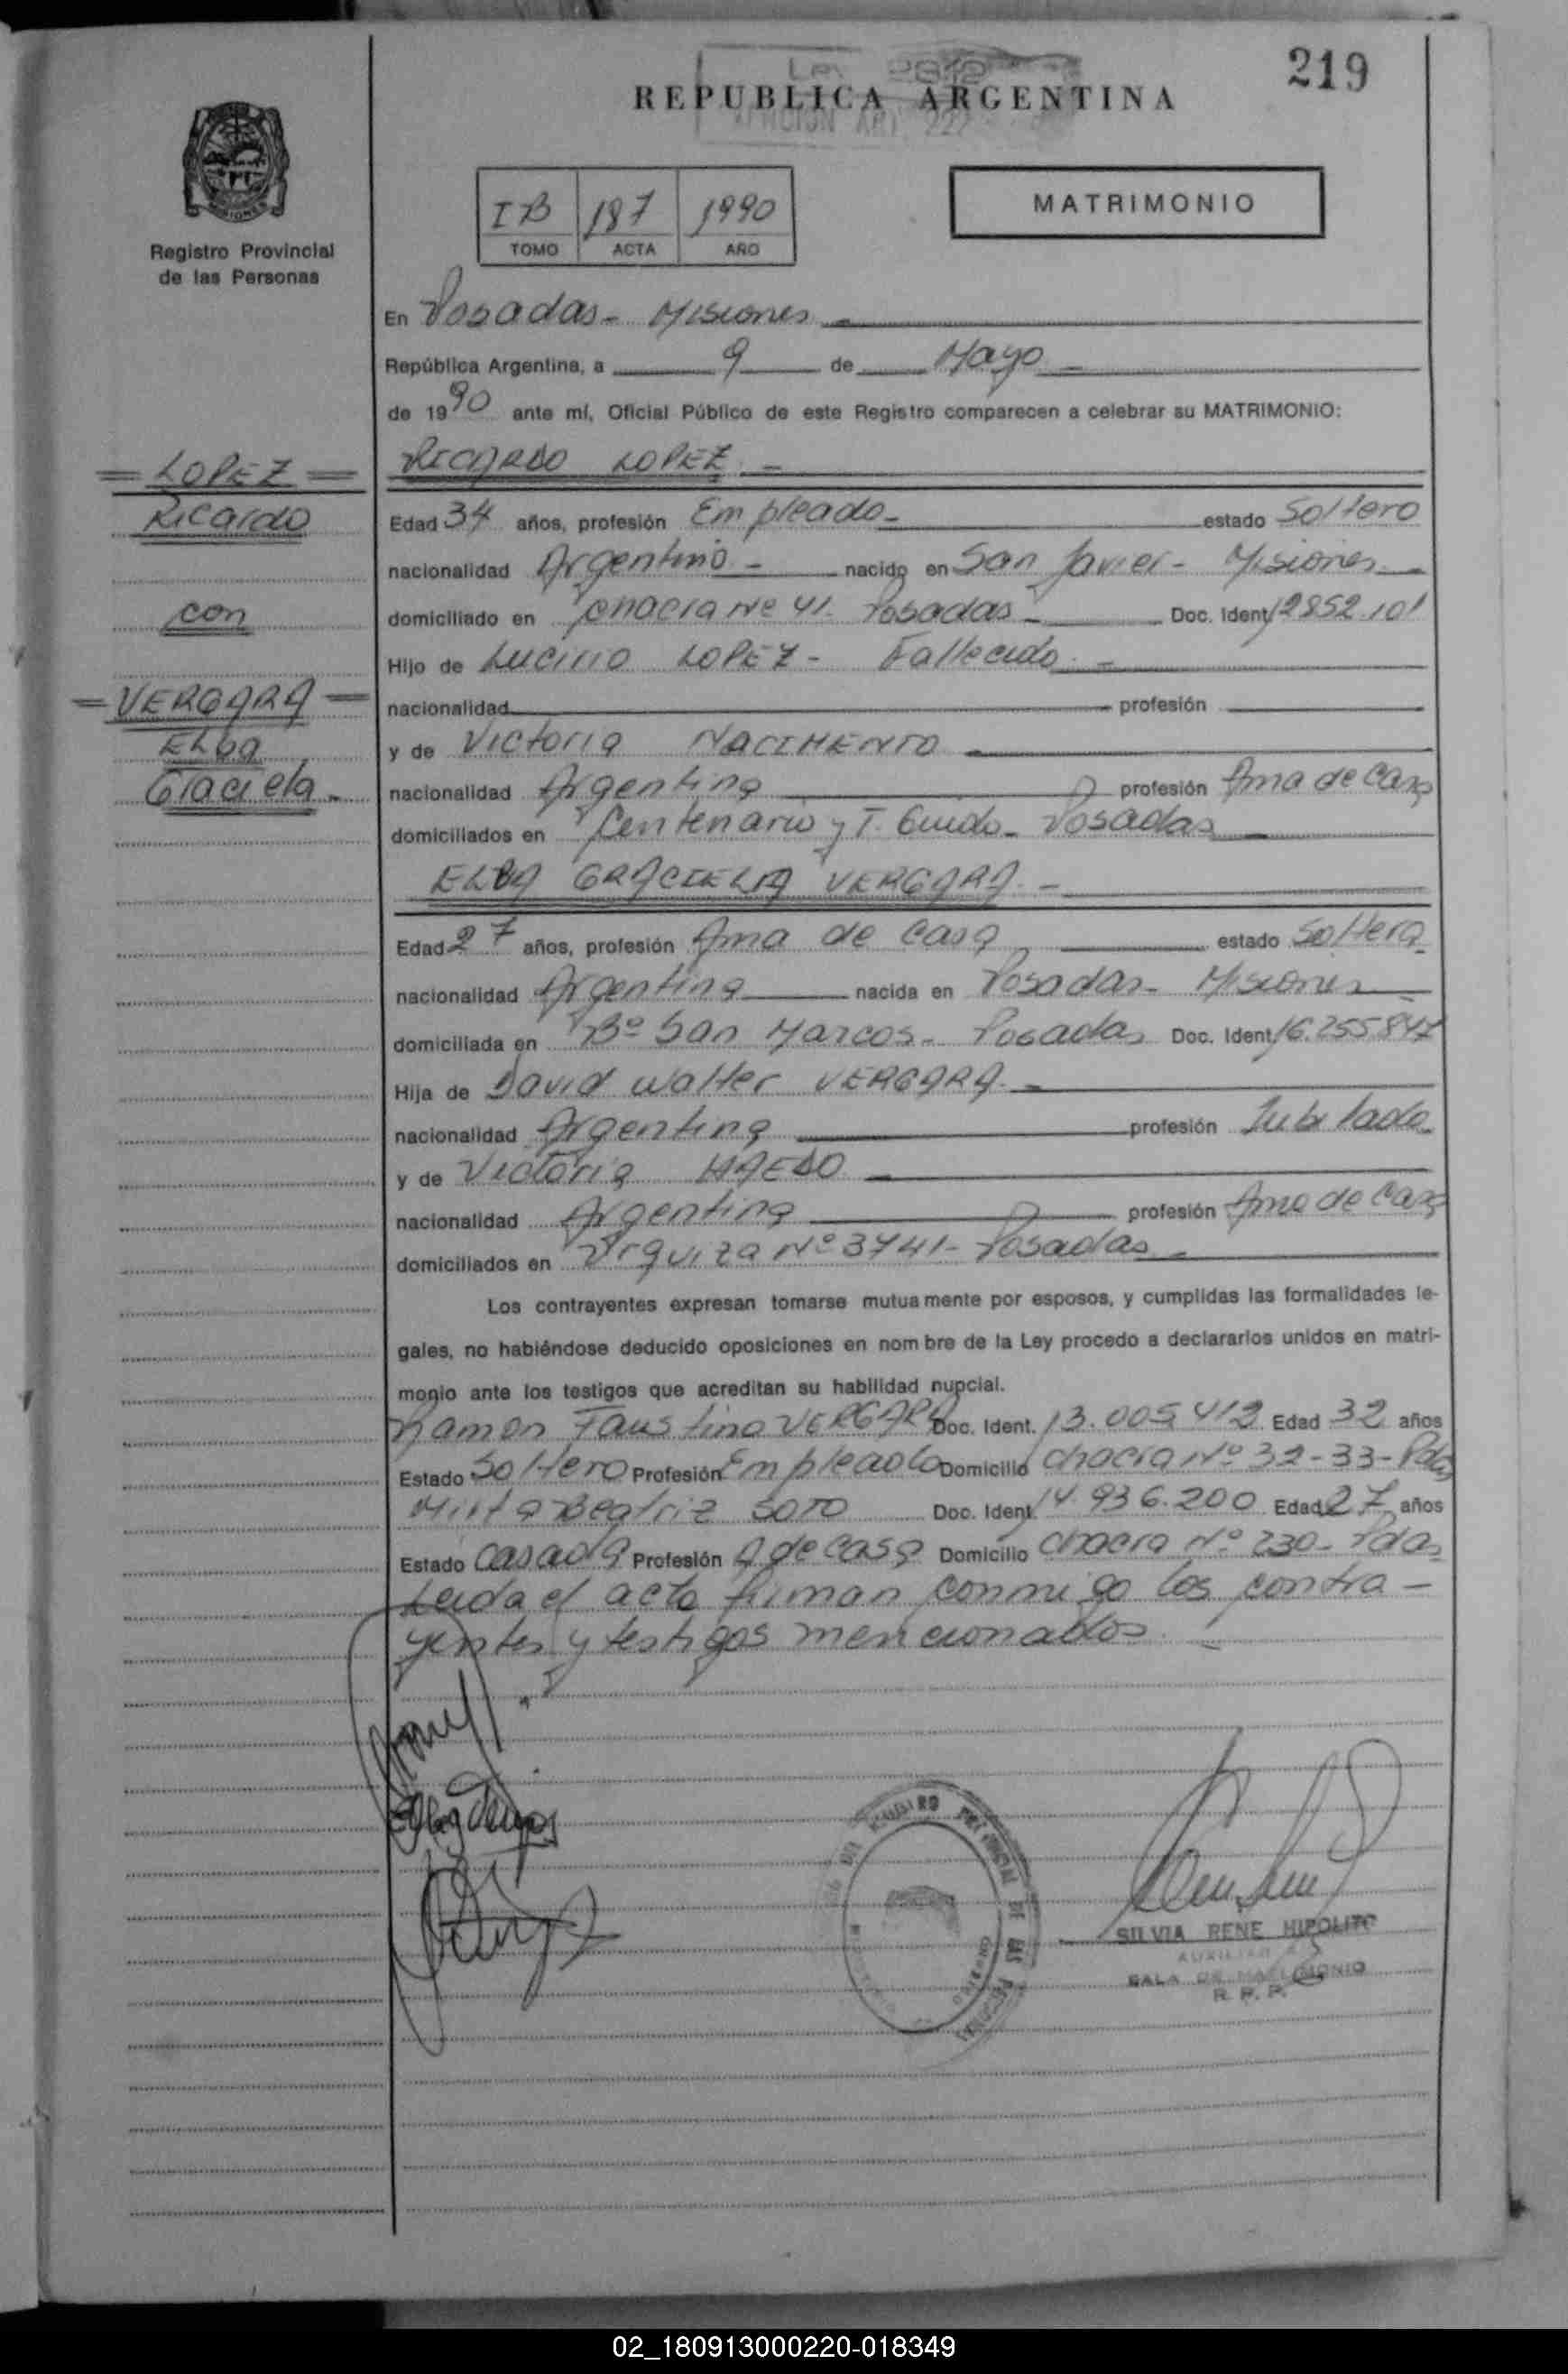 219
Ley 2612
REPUBLICA ARGENTINA
ART 222
I B 187 1990
TOMO ACTA AÑO
MATRIMONIO
MISIONES
Registro Provincial
de las Personas
En Posadas - Misiones -
República Argentina, a 9 de Mayo -
de 1990 ante mí, Oficial Público de este Registro comparecen a celebrar su MATRIMONIO:
RICARDO LOPEZ. -
= LOPEZ =
Ricardo
con
= VERGARA =
Elba
Graciela -
Edad 34 años, profesión Empleado - estado Soltero
nacionalidad Argentino - nacido en San Javier - Misiones -
domiciliado en chacra Nº 41. Posadas - Doc. Ident. 12852.101
Hijo de Lucirio LOPEZ - Fallecido. -
nacionalidad profesión
y de Victoria NACIMENTO -
nacionalidad Argentina profesión Ama de Casa
domiciliados en Centenario y T. Guido - Posadas -
ELBA GRACIELA VERGARA. -
Edad 27 años, profesión Ama de Casa estado Soltera -
nacionalidad Argentina nacida en Posadas - Misiones -
domiciliada en Bº San Marcos - Posadas Doc. Ident. 16.255.847
Hija de David Walter VERGARA. -
nacionalidad Argentina profesión Jubilado -
y de Victoria HAEDO -
nacionalidad Argentina profesión Ama de Casa
domiciliados en Urquiza Nº 3741 - Posadas -
Los contrayentes expresan tomarse mutuamente por esposos, y cumplidas las formalidades le-
gales, no habiéndose deducido oposiciones en nombre de la Ley procedo a declararlos unidos en matri-
monio ante los testigos que acreditan su habilidad nupcial.
Ramon Faustino VERGARA Doc. Ident. 13.005.412 Edad 32 años
Estado Soltero Profesión Empleado Domicilio chacra Nº 32-33-Pdas
Mirta Beatriz SOTO Doc. Ident. 14.936.200 Edad 27 años
Estado Casada Profesión A de Casa Domicilio chacra Nº 230 - Pdas
Leida el acta firman conmigo los contra-
yentes y testigos mencionados. -
REGISTRO PROVINCIAL DE LAS PERSONAS
SILVIA RENE HIPOLITO
AUXILIAR
SALA DE MATRIMONIO
R. P. P.
02_180913000220-018349